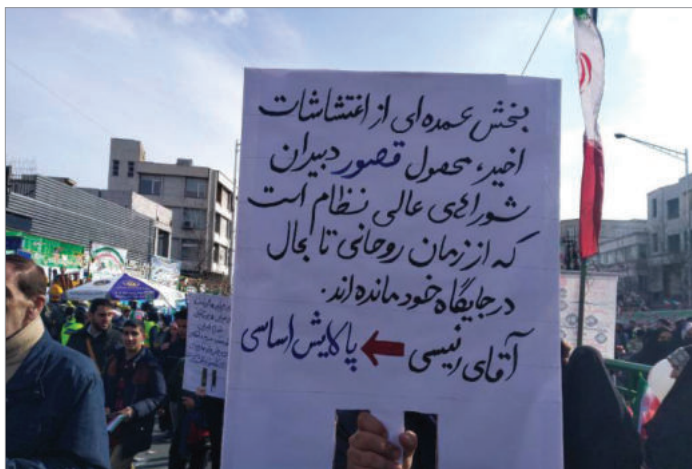 بخش عمده‌ای از اغتشاشات
اخیر، محصول قصور دبیران
شورای عالی نظام است
که از زمان روحانی تا بحال
در جایگاه خود مانده‌اند.
آقای رئیسی ← پاکایش اساسی